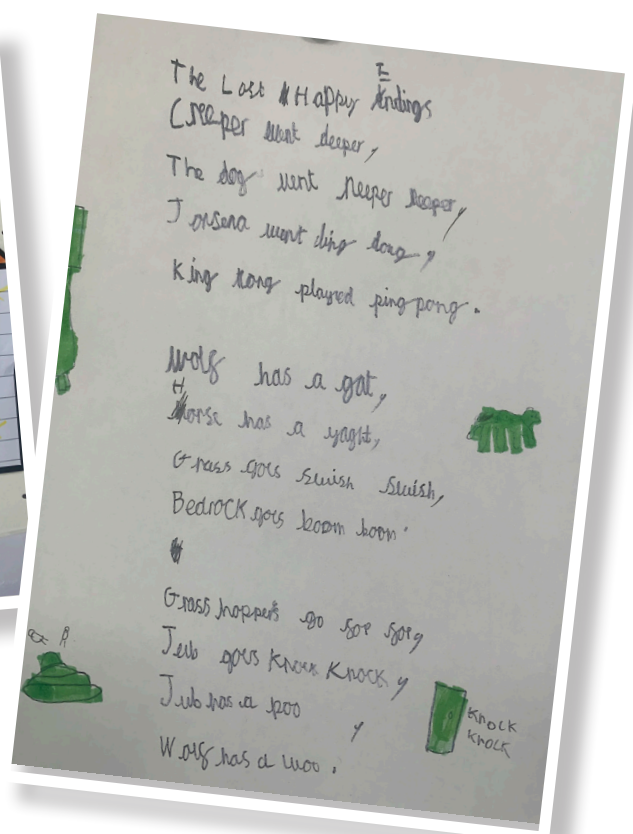 The Lost Happy Endings
Creeper went deeper,
The dog went neeper neeper,
Jorsena went ding dong,
King Kong played ping pong.
Wolf has a gat,
Horse has a yaght,
Grass goes swish swish,
Bedrock goes boom boom.
Grass hoppers go
Jub goes Knock Knock,
Jub has a poo,
Wolf has a woo.
Knock
Knock